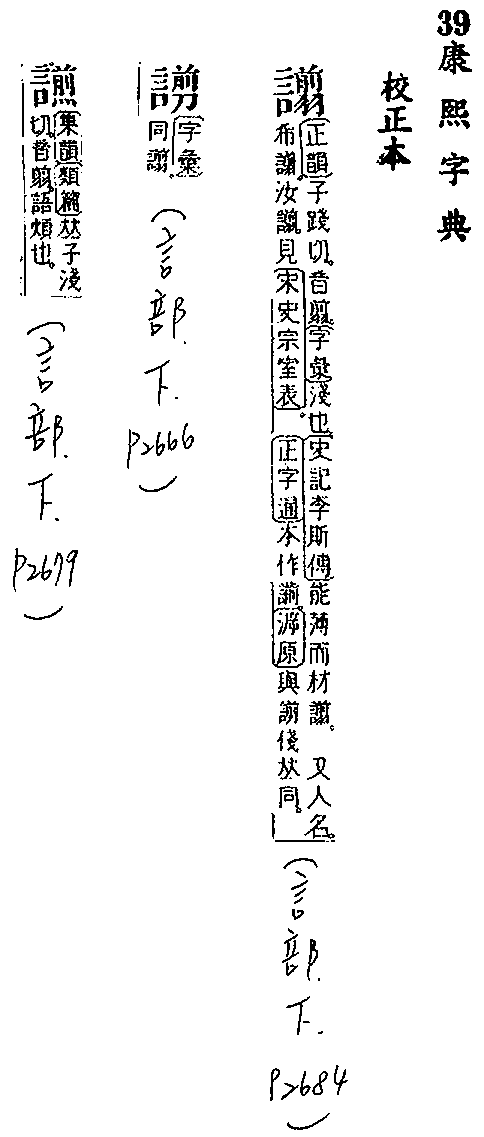 39康熙字典
校正本
謭
正韻子踐切。音翦。字彙淺也。史記李斯傳能薄而材謭。又人名。
希謭。汝謭。見宋史宗室表。正字通本作譾。源原與謭俴𠀤同。
字彙
同謭。
(言部.下.P2666)
集韻類篇𠀤子淺
切。音翦。語煩也。
(言部.下.P2679)
(言部.下.P2684)